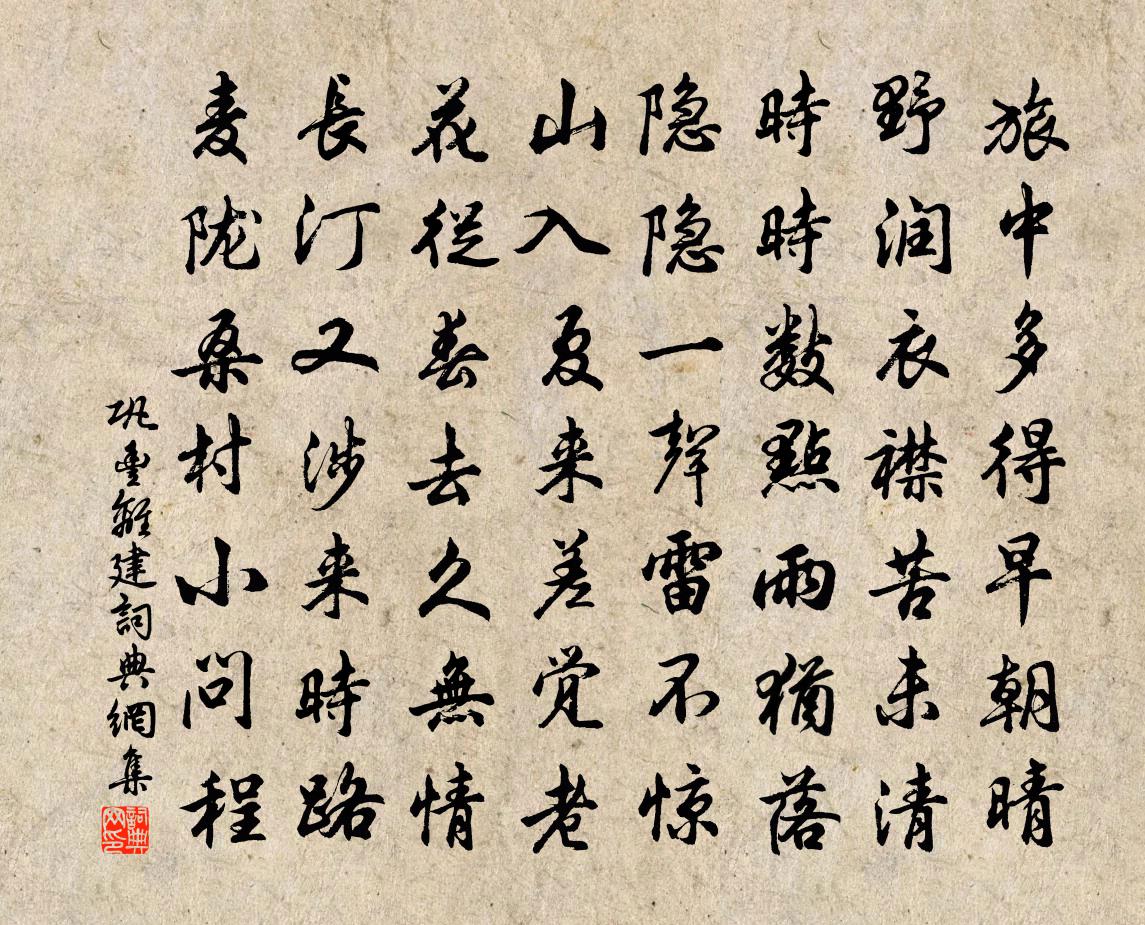 旅中多得早朝晴
野润衣襟苦未清
時時数點雨猶落
隐隐一聲雷不惊
山入夏来差覚老
花從春去久無情
長汀又涉来時路
麦陇桑村小问程
巩豊離建詞典網集
詞典网印